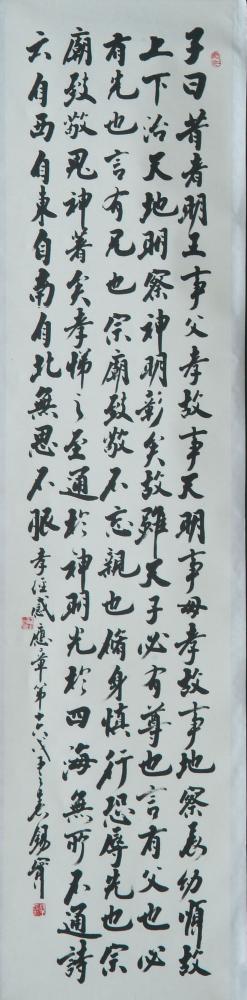 子曰昔者明王事父孝故事天明事母孝故事地察長幼順故
上下治天地明察神明彰矣故雖天子必有尊也言有父也必
有先也言有兄也宗廟致敬不忘親也脩身慎行恐辱先也宗
廟致敬鬼神著矣孝悌之至通於神明光於四海無所不通詩
云自西自東自南自北無思不服孝經感應章第十六